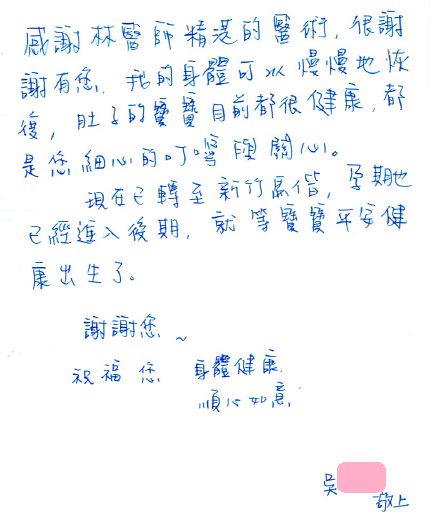 感謝林醫師精湛的醫術，很謝
謝有您，我的身體可以慢慢地恢
復，肚子的寶寶目前都很健康，都
是您細心的叮嚀與關心。
現在已轉至新竹馬偕，孕期也
已經進入後期，就等寶寶平安健
康出生了。
謝謝您~
祝福您 身體健康
順心如意
吳
敬上